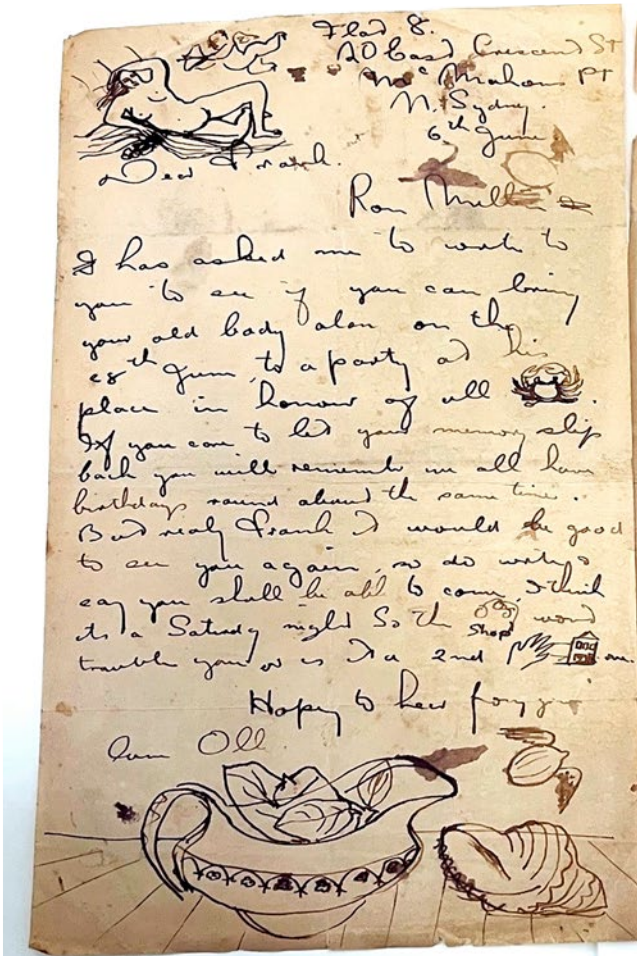 Flat 8.
20 East Crescent St
Mc Mahons Pt
N. Sydney.
6th June.
Dear Frank.
Ron Miller
has asked me to write to
you to see if you can bring
your old body alon on the
28th June, to a party at his
place in honour of all
If you can to let your memory slip
back you will remember we all have
birthdays round about the same time.
But realy Frank it would be good
to see you again, so do write &
say you shall be abl to come, I think
its a Saturday night So the shop wont
trouble you or is it a 2nd one.
Hoping to hear from you
Oll